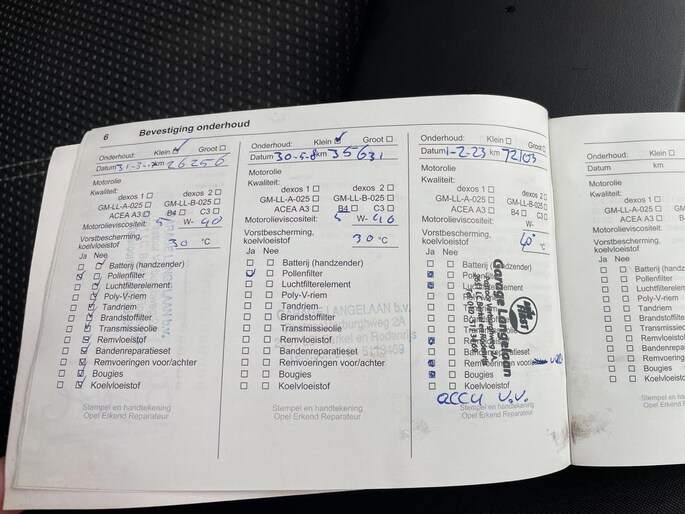 6 Bevestiging onderhoud
Onderhoud: Klein Groot
Datum km 26256
Motorolie
Kwaliteit:
dexos 1 dexos 2
GM-LL-A-025 GM-LL-B-025
ACEA A3 B4 C3
Motorolieviscositeit: 5 W- 40
Vorstbescherming,
koelvloeistof 30 °C
Ja Nee
Batterij (handzender)
Pollenfilter
Luchtfilterelement
Poly-V-riem
Tandriem
Brandstoffilter
Transmissieolie
Remvloeistof
Bandenreparatieset
Remvoeringen voor/achter
Bougies
Koelvloeistof
Stempel en handtekening
Opel Erkend Reparateur
Onderhoud: Klein Groot
Datum 30-5- km 35631
Motorolie
Kwaliteit:
dexos 1 dexos 2
GM-LL-A-025 GM-LL-B-025
ACEA A3 B4 C3
Motorolieviscositeit: 5 W- 40
Vorstbescherming,
koelvloeistof 30 °C
Ja Nee
Batterij (handzender)
Pollenfilter
Luchtfilterelement
Poly-V-riem
Tandriem
Brandstoffilter
Transmissieolie
Remvloeistof
Bandenreparatieset
Remvoeringen voor/achter
Bougies
Koelvloeistof
LANGELAAN b.v.
Stempel en handtekening
Opel Erkend Reparateur
Onderhoud: Klein Groot
Datum 1-2-23 km 72103
Motorolie
Kwaliteit:
dexos 1 dexos 2
GM-LL-A-025 GM-LL-B-025
ACEA A3 B4 C3
Motorolieviscositeit: W-
Vorstbescherming,
koelvloeistof 40° °C
Ja Nee
Batterij (handzender)
Remvoeringen
Bougies
Koelvloeistof
Garage Langelaan
accu v.v.
Stempel en handtekening
Opel Erkend Reparateur
Onderhoud: Klein
Datum km
Motorolie
Kwaliteit:
dexos 1
GM-LL-A-025
ACEA A3
Motorolieviscositeit:
Vorstbescherming,
koelvloeistof
Ja Nee
Batterij
Pollenfilter
Luchtfilterelement
Poly-V-riem
Tandriem
Brandstoffilter
Transmissieolie
Remvloeistof
Bandenreparatieset
Remvoeringen
Bougies